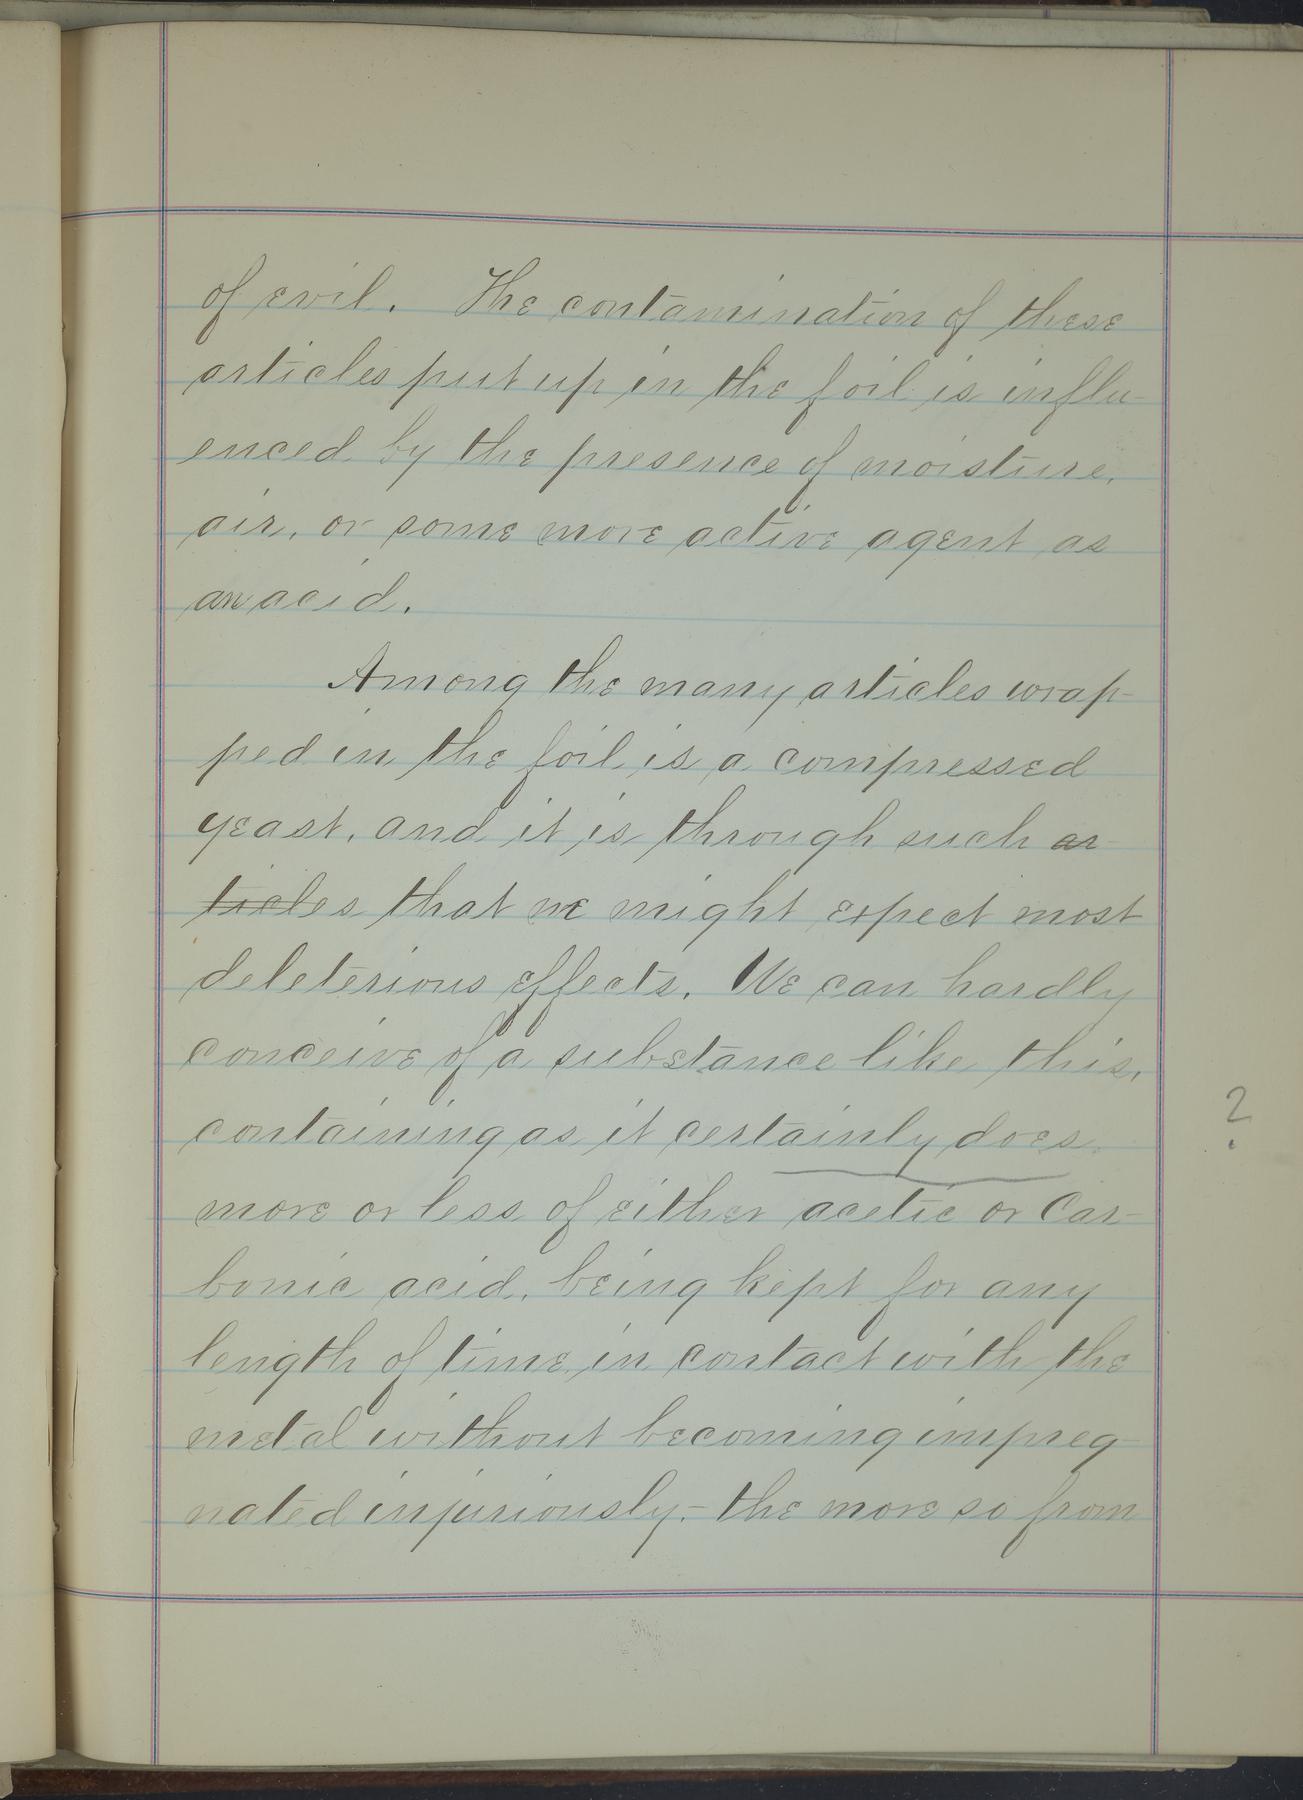 of evil. The contamination of these
articles put up in the foil is influ-
enced by the presence of moisture,
air, or some more active agent as
an acid.
Among the many articles wrap-
ped in the foil is a compressed
yeast, and it is through such ar-
ticles that we might expect most
deleterious effects. We can hardly
conceive of a substance like this,
containing as it certainly does
?
more or less of either acetic or Car-
bonic acid, being kept for any
length of time in contact with the
metal without becoming impreg-
nated injuriously,- the more so from